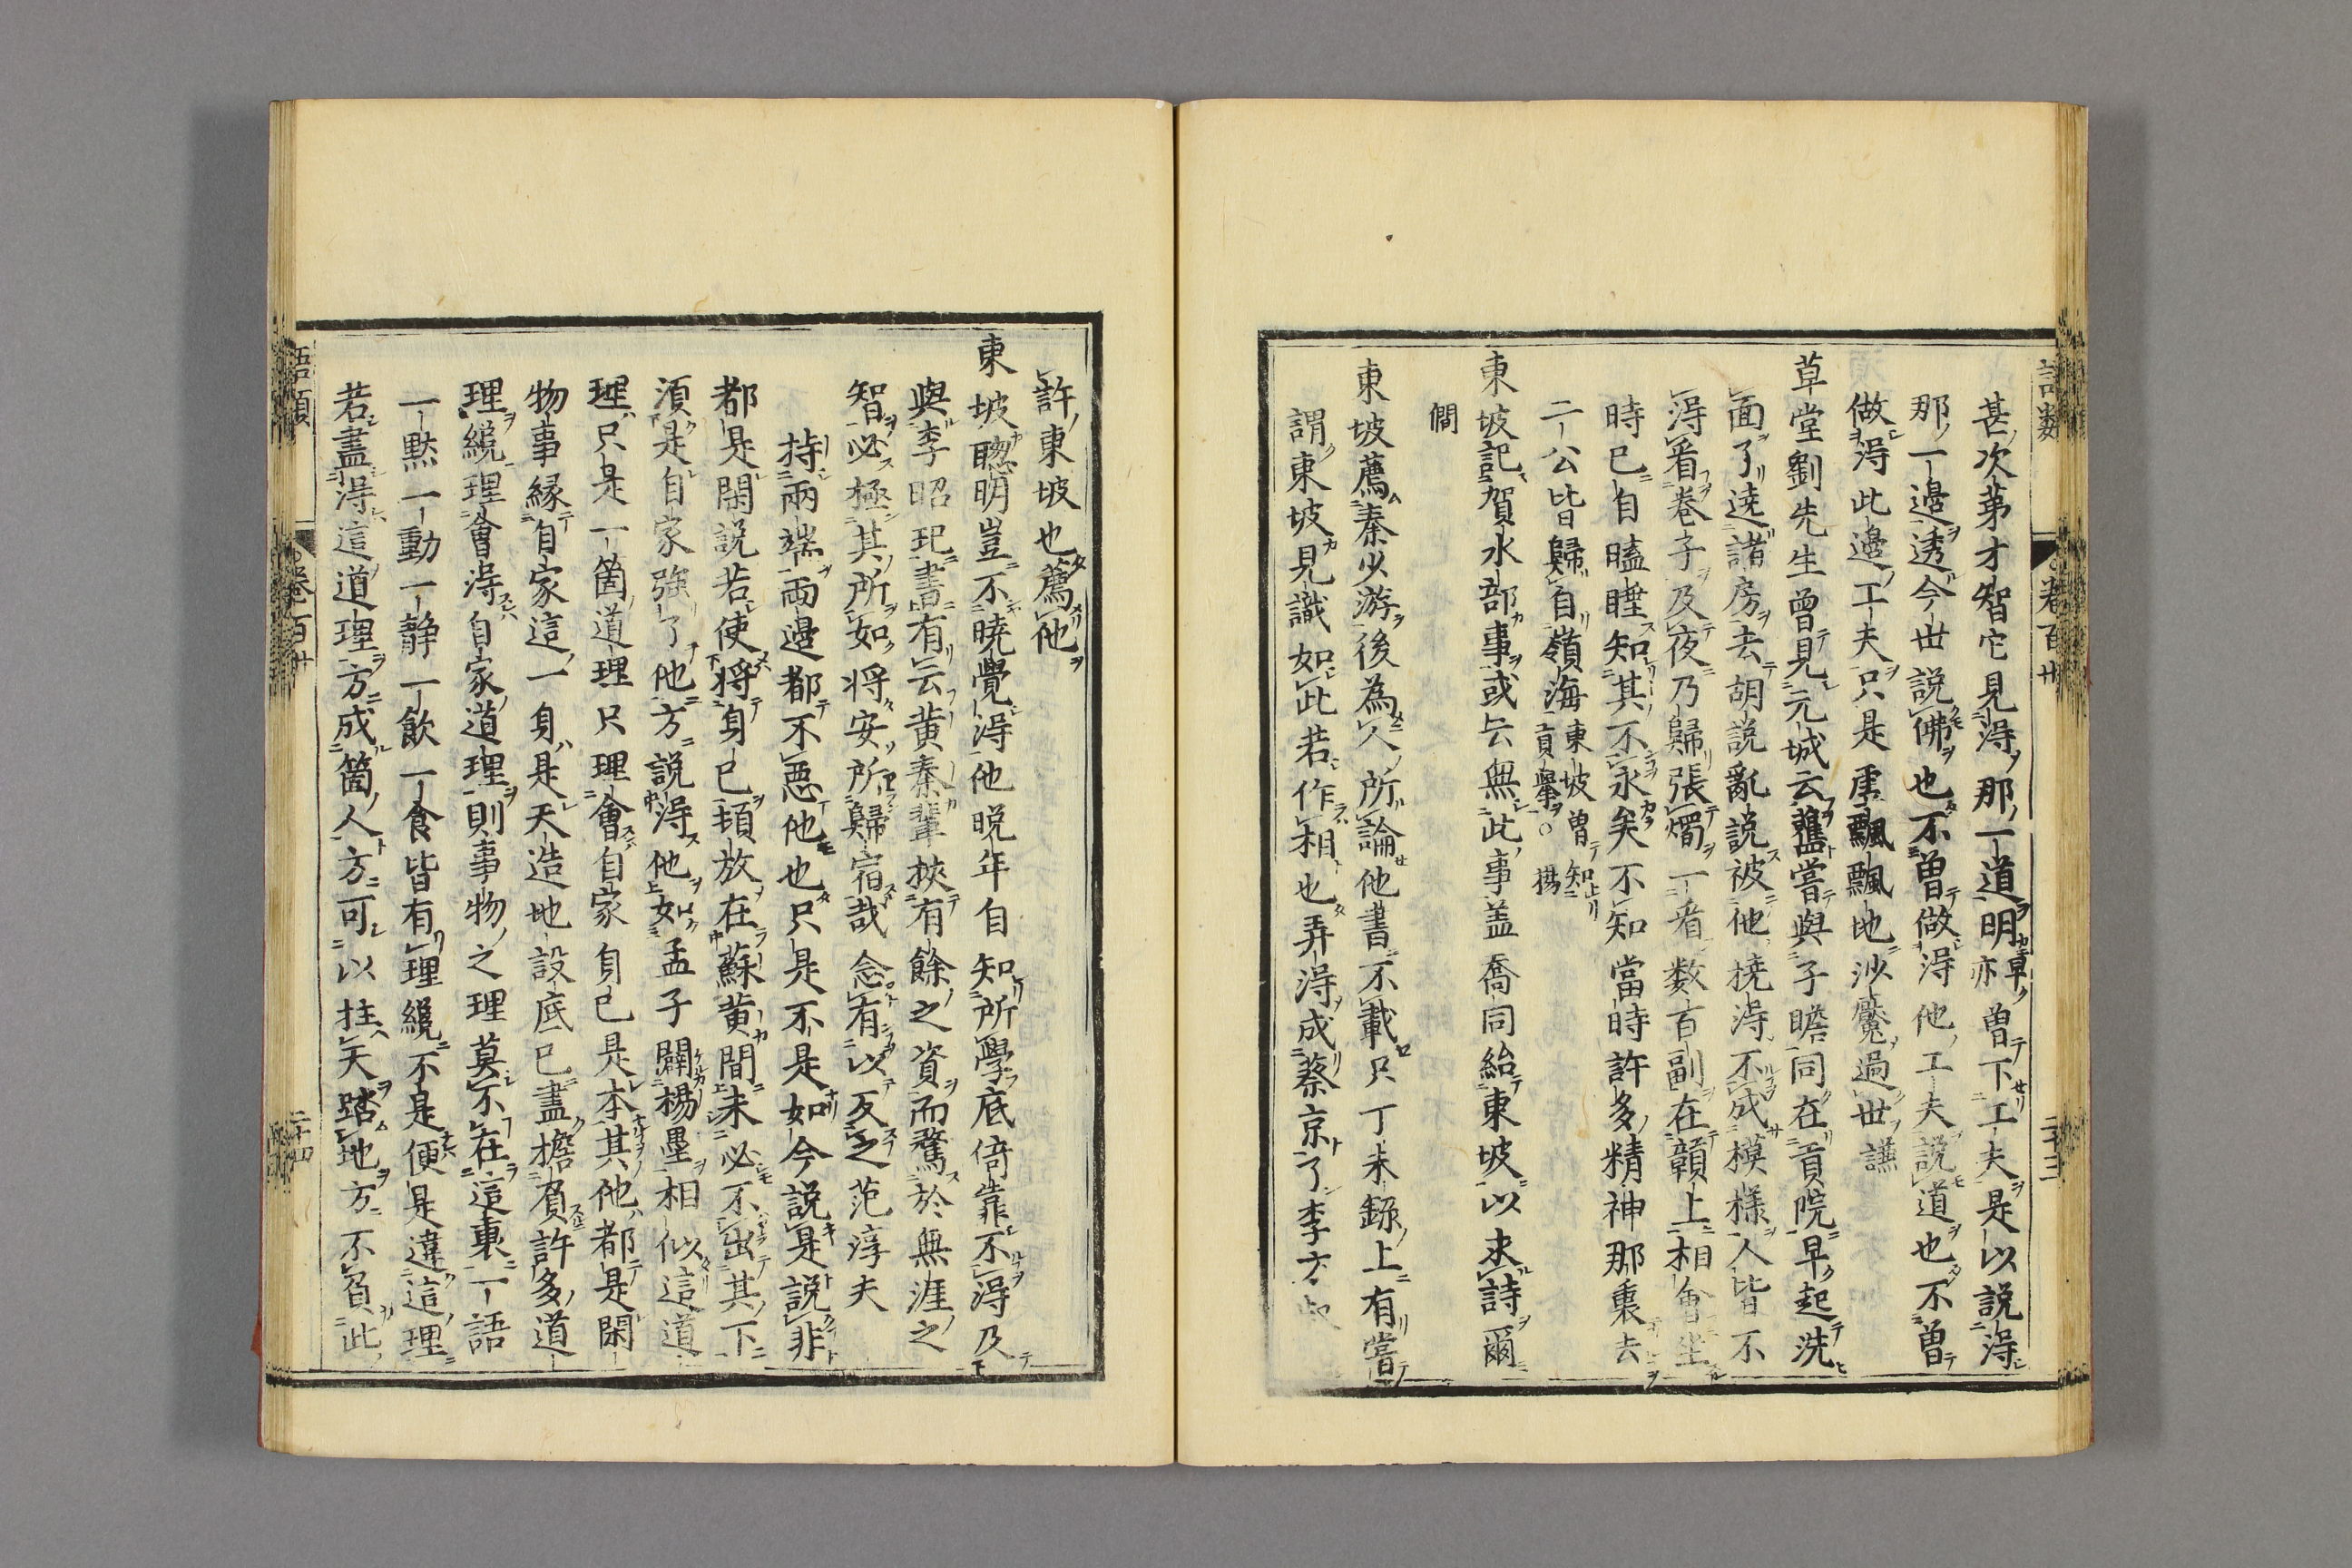 語類 卷百卅 二十三
甚次第才智它見得那一道明早亦曾下工夫是以說得
那一邊透今世說佛也不曾做得他工夫說道也不曾
做得此邊工夫只是虛飄飄地沙魘過世謙
草堂劉先生曾見元城云舊嘗與子瞻同在貢院早起洗
面了遶諸房去胡說亂說被他撓得不成模樣人皆不
得看卷子及夜乃歸張燭一看数百副在贑上相會坐
時已自瞌睡知其不永矣不知當時許多精神那裏去
二公皆歸自嶺海東坡曾知貢舉○揚
東坡記賀水部事或云無此事盖喬同紿東坡以求詩爾
僩
東坡薦秦少游後為人所論他書不載只丁未録上有嘗
謂東坡見識如此若作相也弄得成蔡京了李方
許東坡也薦他
東坡聦明豈不曉覺得他晚年自知所學底倚靠不得及
與李昭玘書有云黄秦輩挾有餘之資而騖於無涯之
智必極其所如将安所歸宿哉念有以反之范淳夫
持兩端兩邊都不惡他也只是不是如今說是說非
都是閑說若使将身己頓放在蘇黄間未必不出其下
須是自家強了他方說得他如孟子闢楊墨相似這道
理只是一箇道理只理會自家身己是本其他都是閑
物事縁自家這一身是天造地設底已盡擔負許多道
理纔理會得自家道理則事物之理莫不在這裏一語
一黙一動一静一飲一食皆有理纔不是便是違這理
若盡得這道理方成箇人方可以拄天踏地方不負此
語類 卷百卅 二十四